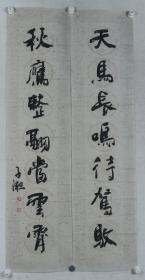 天馬長鳴待駕馭
秋鷹整翮當雲霄
子淑